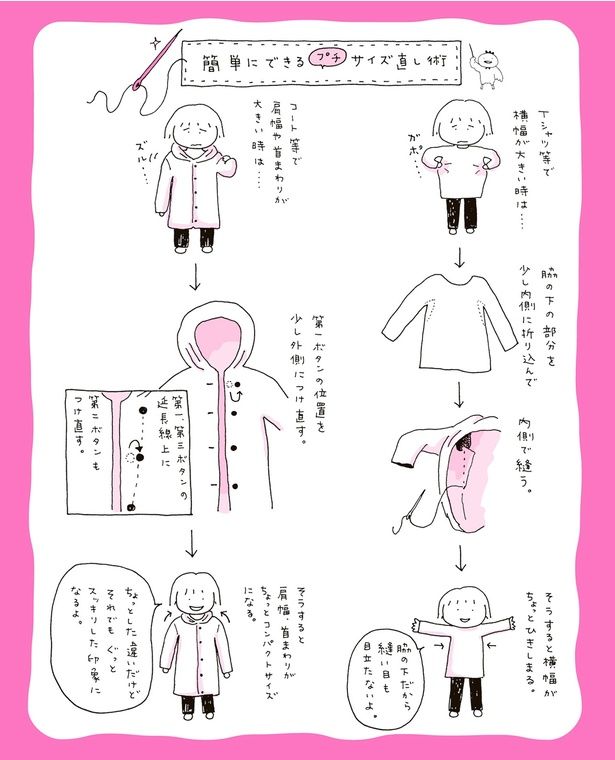 簡単にできるプチサイズ直し術
Tシャツ等で
横幅が大きい時は……
ガボ…
脇の下の部分を
少し内側に折り込んで
内側で縫う。
そうすると横幅が
ちょっとひきしまる。
脇の下だから
縫い目も
目立たないよ。
コート等で
肩幅や首まわりが
大きい時は……
ズル……
第一ボタンの位置を
少し外側につけ直す。
第一、第三ボタンの
延長線上に
第二ボタンも
つけ直す。
そうすると
肩幅、首まわりが
ちょっとコンパクトサイズ
になる。
ちょっとした違いだけど
それでもぐっと
スッキリした印象に
なるよ。